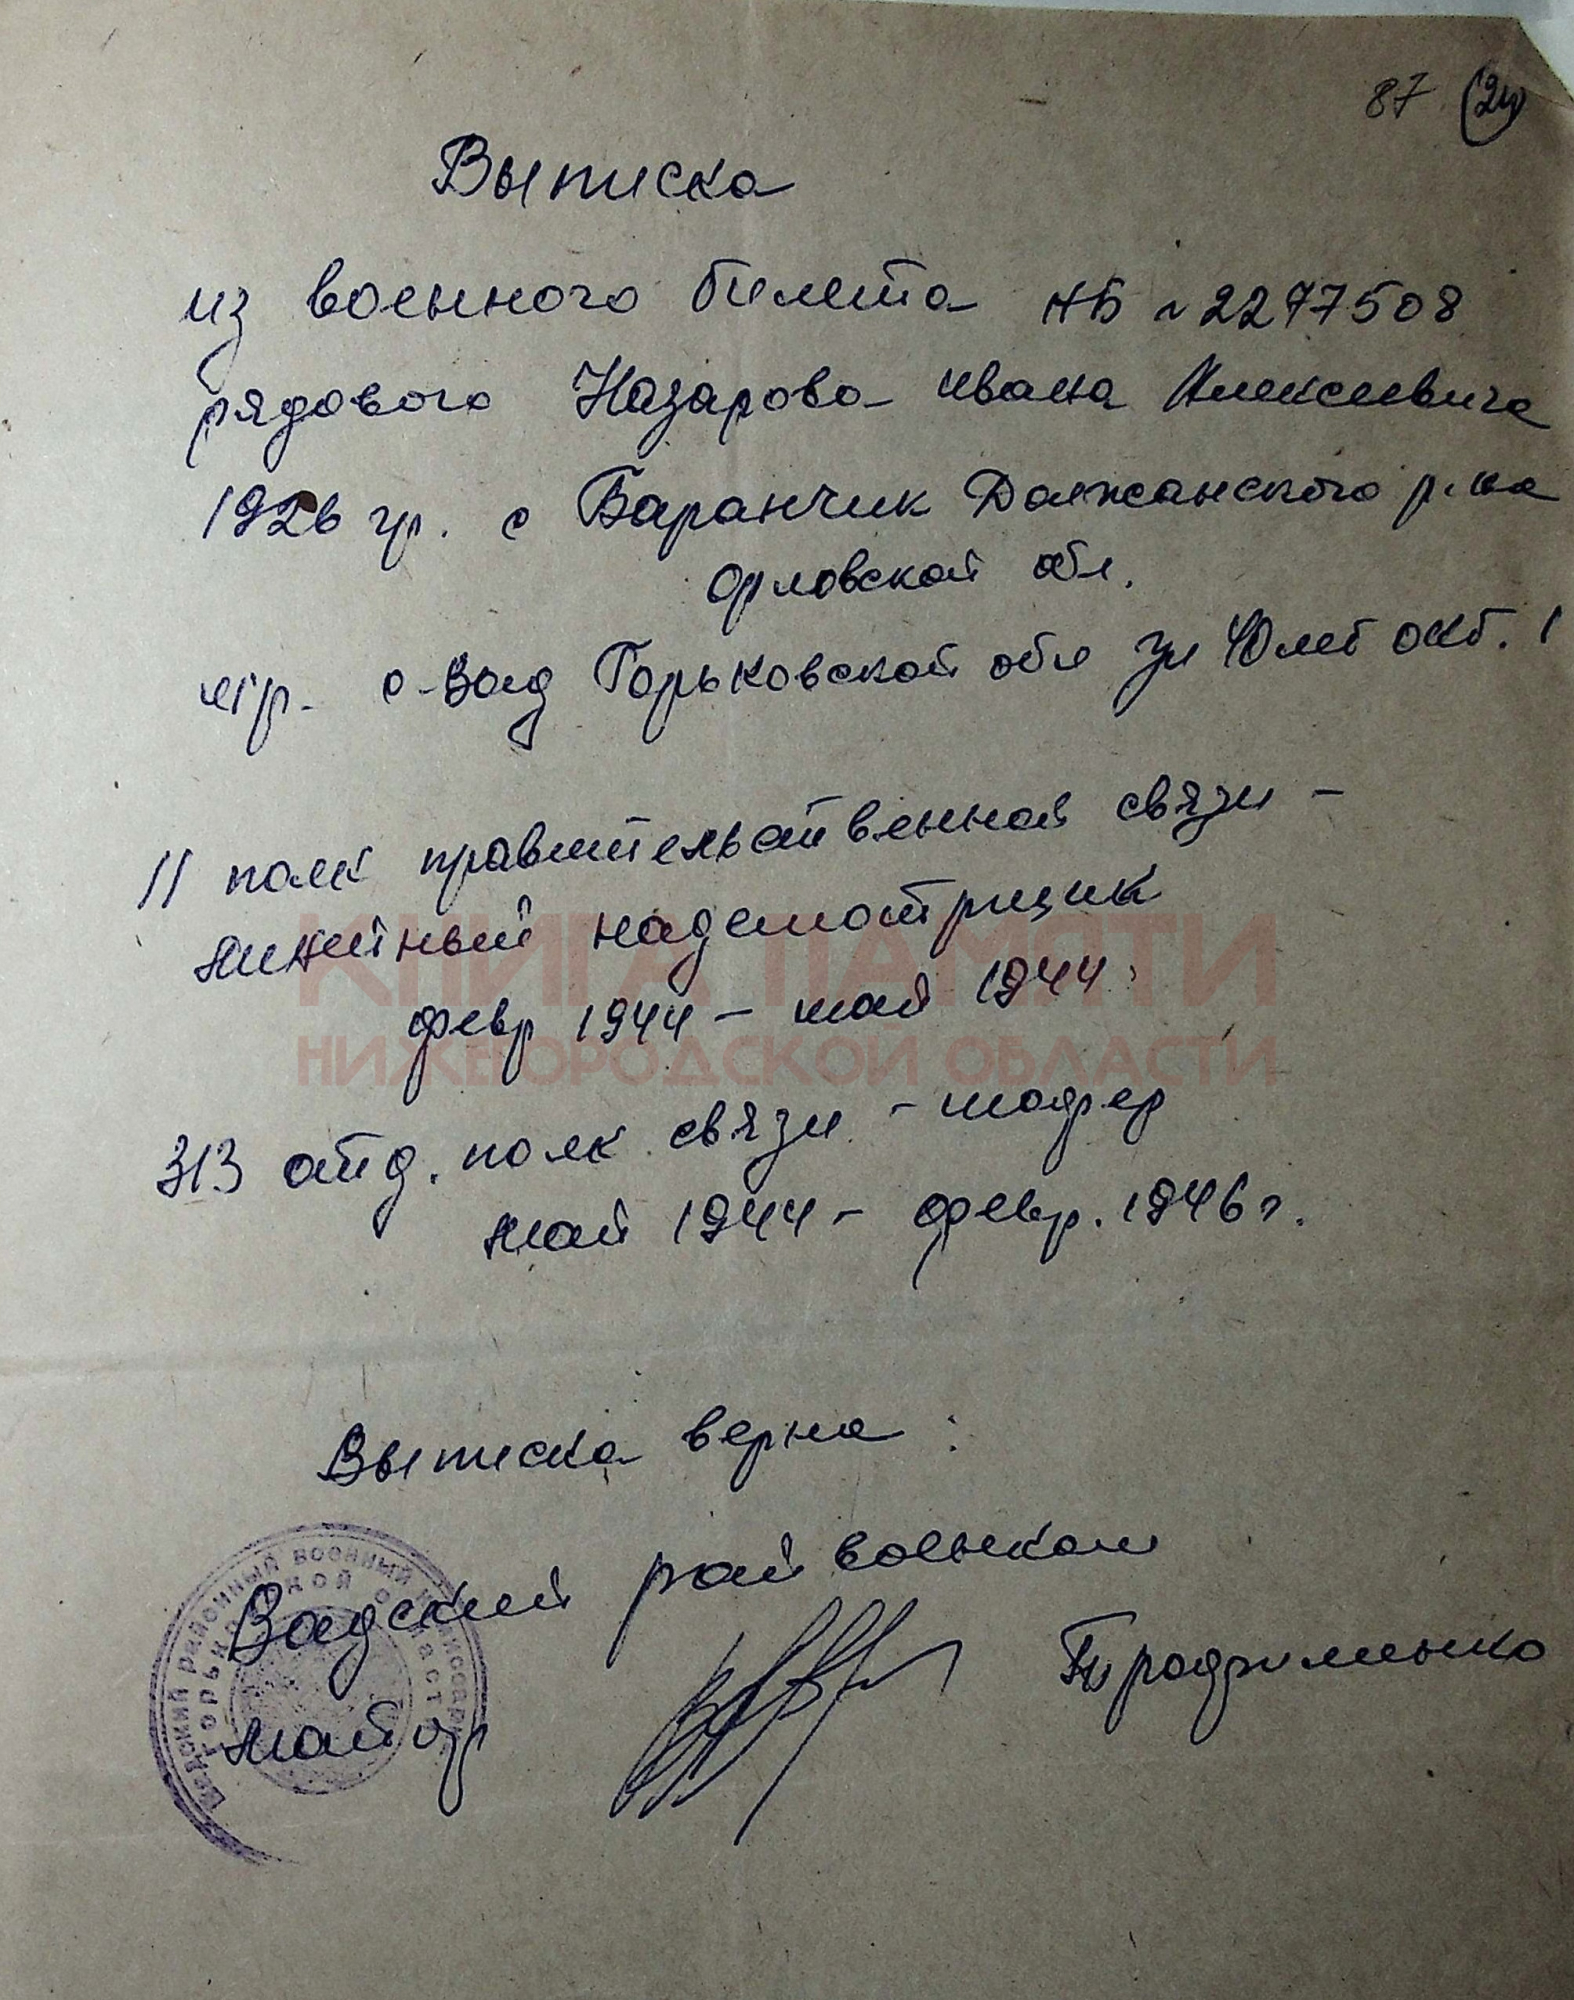 87 (24)
Выписка
из военного билета НБ № 2277508
рядового Назарова Ивана Алексеевича
1926 гр. с Баранчик Должанского р-на
Орловской обл.
с-Вад Горьковской обл ул 40 лет окт. 1
11 полк правительственной связи -
линейный надсмотрщик
февр 1944 - май 1944
КНИГА ПАМЯТИ
НИЖЕГОРОДСКОЙ ОБЛАСТИ
313 отд. полк связи - шофер
май 1944 - февр. 1946 г.
Выписка верна :
Вадский райвоенком
майор
Вадский районный военный комиссариат
Горьковской области